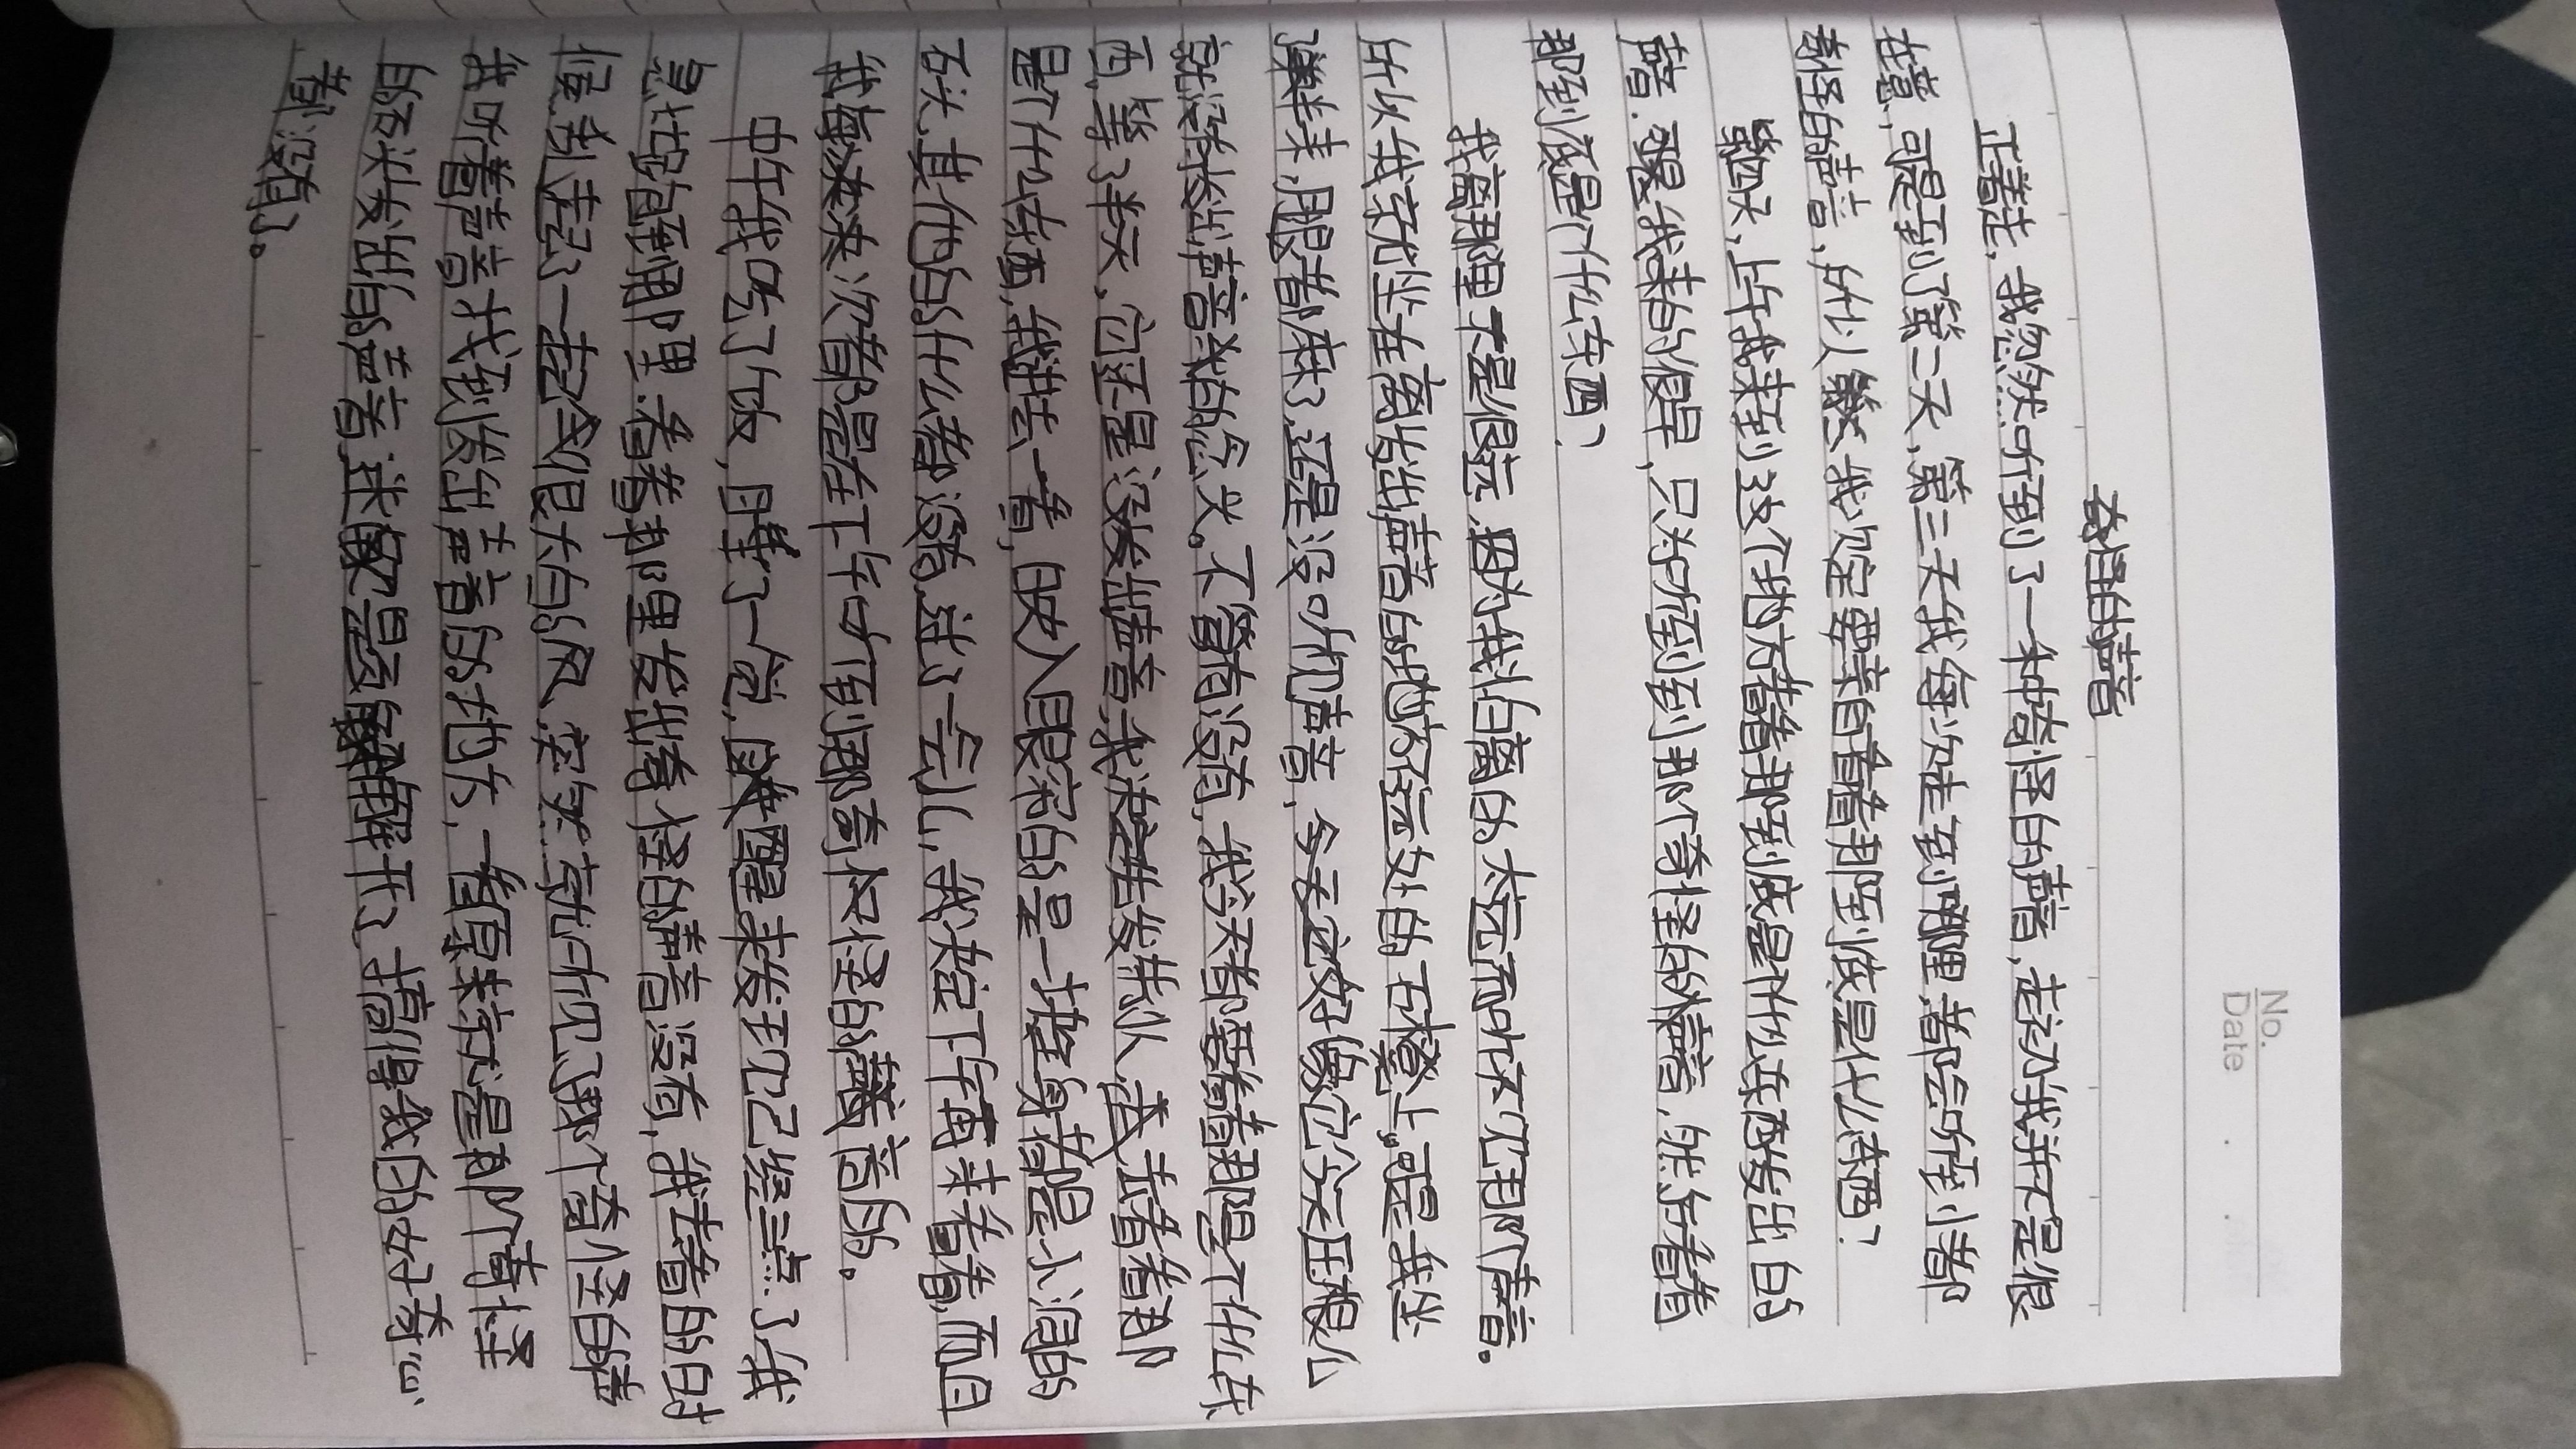 No.
Date
奇怪的声音
正走着, 我忽然听到了一种奇怪的声音, 走初我并不是很
在意, 可是到了第二天, 第三天我每次走到哪里都会听到小都
奇怪的声音, 所以我决定要亲自看看那到底是什么东西?
第四天, 上午我来到这个地方看看那到底是什么东西发出的
声音. 可是我来的很早, 只为听到到那个奇怪的声音, 然后看看
那到底是个什么东西?
我离那里不是很远, 因为我怕离的太远而听不见那个声音。
所以我就坐在离发出声音的地方不远处的石橙上, 可是我坐
了半天, 腿都麻了, 还是没听见声音, 今天它好像它今天压根儿
就没发出声音. 的念头。不管有没有, 我今天都要看看那是个什么东
西, 等了半天, 它还是没发出声音, 我决定先发制人, 去看看那
是个什么东西, 我进去一看, 映入眼帘的是一堆身都是小洞的
石头, 其他的什么都没有, 过了一会儿, 我决定下午再来看看, 而且
我每次来次都是在下午才听到那奇怪怪的声音的。
中午我吃了饭, 睡了一觉, 醒来发现已经三点了, 我
急忙跑到那里看看那里发出奇怪的声音没有, 我去看的时
候, 刮起了一起令很大的风, 突然就听见了那个奇怪的声
我听着声音找到发出声音的地方, 一看原来就是那个奇怪
的石头发出的声音, 迷底是解开了, 搞得我的好奇心
都没有了。